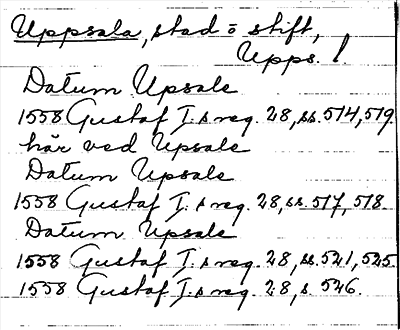 Uppsala, stad o stift,
Upps. l
Datum Upsale
1558 Gustaf I.s reg. 28, ss. 514, 519.
här ved Upsale
Datum Upsale
1558 Gustaf I.s reg. 28, ss. 517, 518.
Datum Upsale
1558 Gustaf I.s reg. 28, ss. 521, 525
1558 Gustaf I.s reg. 28, s. 526.